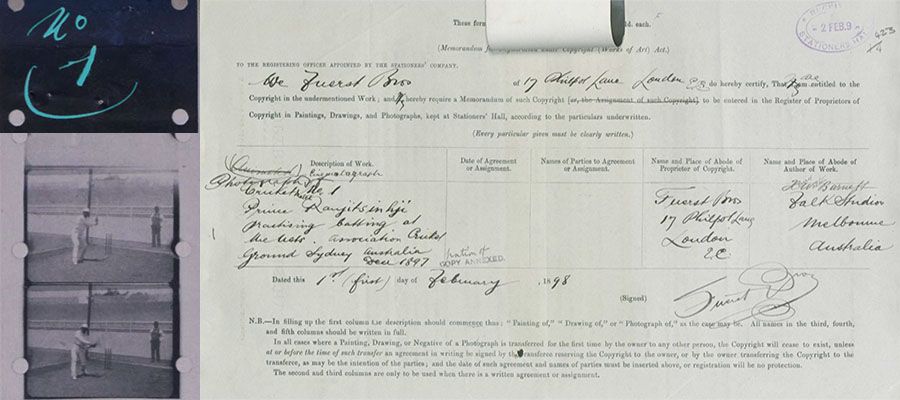 No
1
These for
ld. each.
(Memorandum for Registration under Copyright (Works of Art) Act.)
2 FEB.9
STATIONERS HALL
423
TO THE REGISTERING OFFICER APPOINTED BY THE STATIONERS' COMPANY.
We Fuerst Bros of 17 Philpot Lane London E.C. do hereby certify, That I am we entitled to the
Copyright in the undermentioned Work; and I hereby require a Memorandum of such Copyright [or, the Assignment of such Copyright], to be entered in the Register of Proprietors
of Copyright in Paintings, Drawings, and Photographs, kept at Stationers' Hall, according to the particulars underwritten.
(Every particular given must be clearly written.)
Description of Work.
Date of Agreement
or Assignment.
Names of Parties to Agreement
or Assignment.
Name and Place of Abode of
Proprietor of Copyright.
Name and Place of Abode of
Author of Work.
Cinematograph
Photograph of
Cricket No 1
Prince Ranjitsinhji
practising batting at
the
association Cricket
Ground Sydney Australia
Dec 1897
COPY ANNEXED.
Fuerst Bros
17 Philpot Lane
London
E.C.
Barnett
Falk Studios
Melbourne
Australia
Dated this 1st (first) day of February, 1898
(Signed) Fuerst Bros
N.B.—In filling up the first column the description should commence thus: "Painting of," "Drawing of," or "Photograph of," as the case may be. All names in the third, fourth,
and fifth columns should be written in full.
In all cases where a Painting, Drawing, or Negative of a Photograph is transferred for the first time by the owner to any other person, the Copyright will cease to exist, unless
at or before the time of such transfer an agreement in writing be signed by the transferee reserving the Copyright to the owner, or by the owner transferring the Copyright to the
transferee, as may be the intention of the parties; and the date of such agreement and names of parties must be inserted above, or registration will be no protection.
The second and third columns are only to be used when there is a written agreement or assignment.